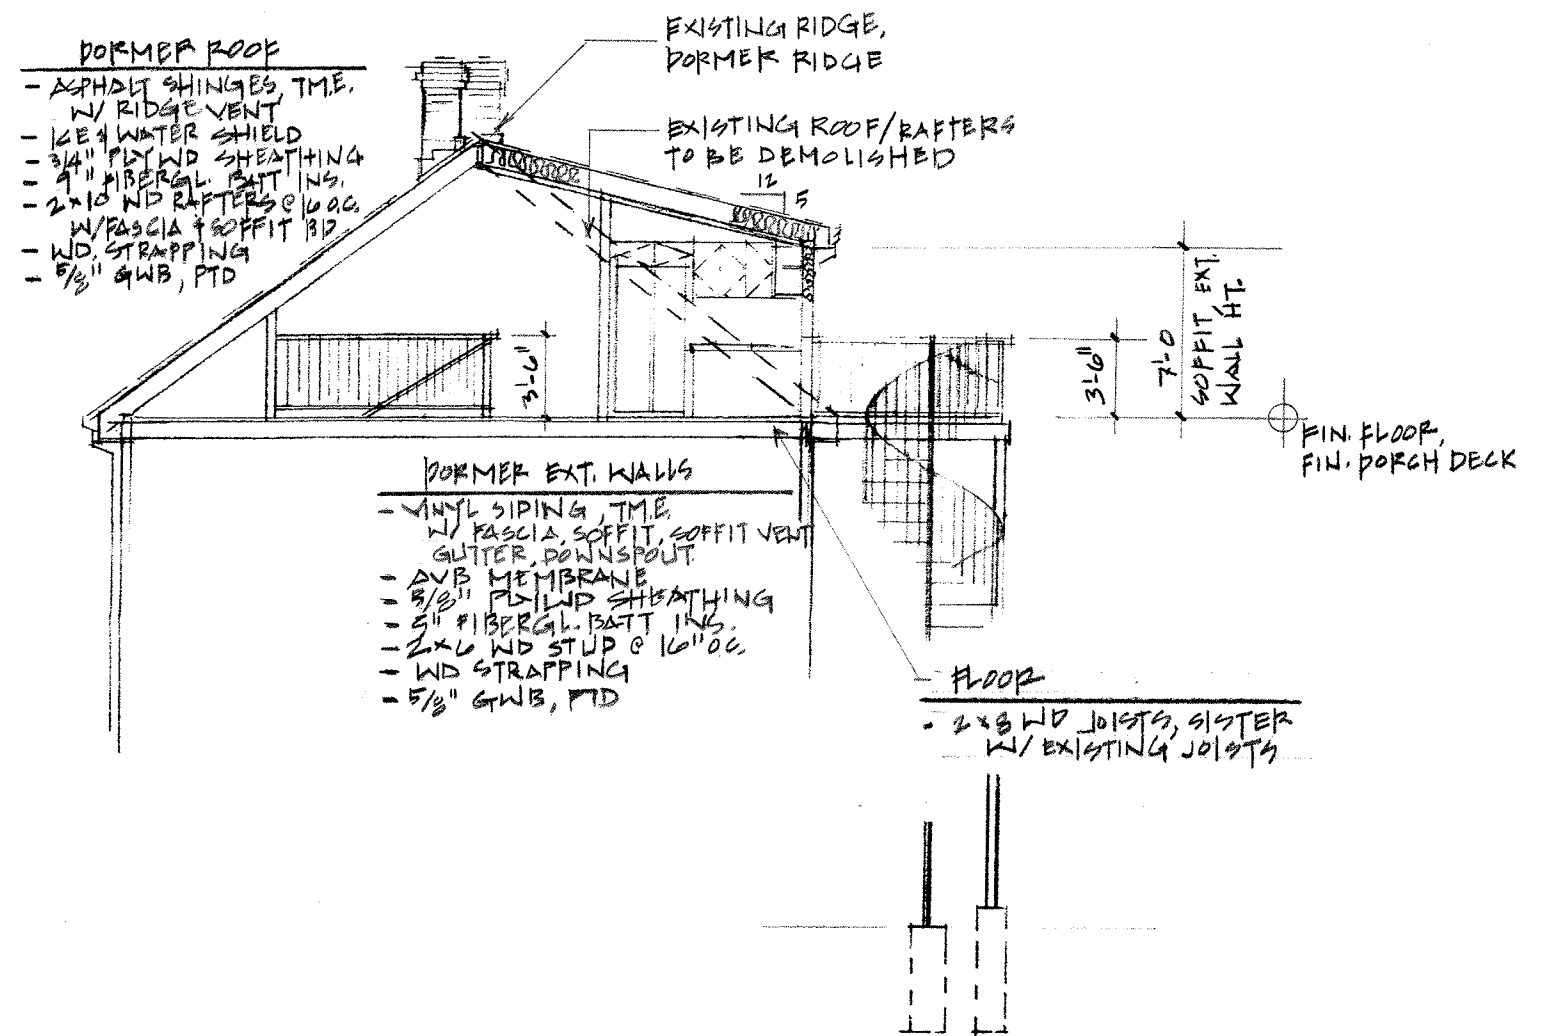 DORMER ROOF
- ASPHALT SHINGES, T.M.E.
W/ RIDGE VENT
- ICE & WATER SHIELD
- 3/4" PLYWD SHEATHING
- 9" FIBERGL. BATT INS.
- 2x10 WD RAFTERS @ 16 O.C.
W/FASCIA & SOFFIT BD
- WD. STRAPPING
- 5/8" GWB, PTD
EXISTING RIDGE,
DORMER RIDGE
EXISTING ROOF/RAFTERS
TO BE DEMOLISHED
12
5
3'-6"
3'-6"
7'-0
SOFFIT, EXT.
WALL HT.
FIN. FLOOR,
FIN. PORCH DECK
DORMER EXT. WALLS
- VINYL SIDING, T.M.E.
W/ FASCIA, SOFFIT, SOFFIT VENT
GUTTER, DOWNSPOUT
- AVB MEMBRANE
- 5/8" PLYWD SHEATHING
- 5" FIBERGL. BATT INS.
- 2x6 WD STUD @ 16" O.C.
- WD STRAPPING
- 5/8" GWB, PTD
FLOOR
- 2x8 WD JOISTS, SISTER
W/ EXISTING JOISTS